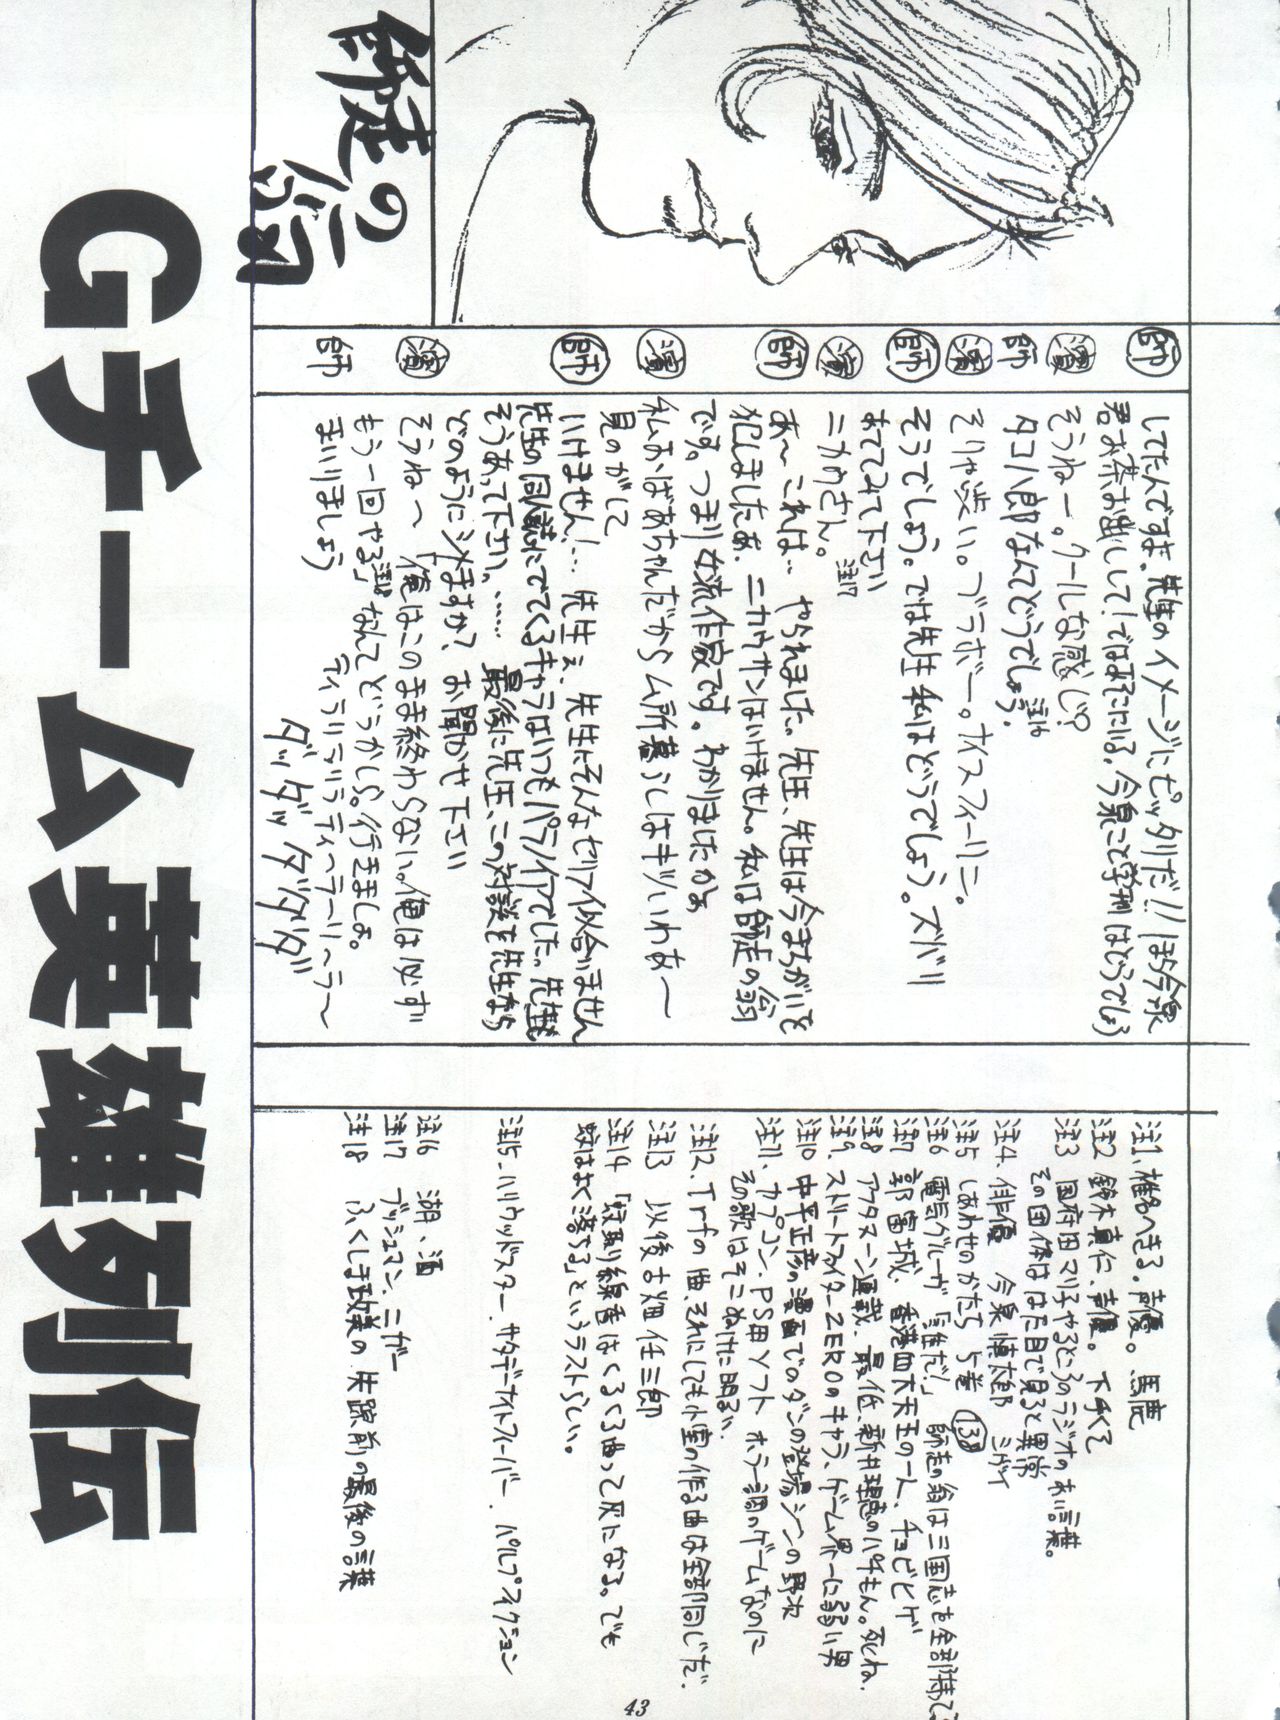 Gチーム英雄列伝
師走の翁
師 してたんですよ。先生のイメージにピッタリだ!!ほら今泉
君お茶お出しして!ではあそこにいる、今泉こと学刑はどうでしょう
濱 そうねー。クールな感じ?
師 タコハ郎なんてどうでしょう。注16
濱 そりゃ渋い。ブラボー。ナイスフィーリニ。
師 そうでしょう。では先生私はどうでしょう。ズバリ
あててみて下さい
濱 ニカウさん。注17
師 あ〜これは… やられました。先生、先生は今まちがいを
犯しましたよ。ニカウサンはいけません。私は師走の翁
です。つまり女流作家です。わかりましたかぁ
濱 私おばあちゃんだからム所暮らしはキツいわぁ〜
見のがして
師 いけません!… 先生ェ、先生にそんなセリフ似合いません
先生の同人誌にでてくるキャラはいつもパラノイアでした。先生も
そうあって下さい、…… 最後に先生、この対談を先生なら
どのようにシメますか?お聞かせ下さい
濱 そうね〜 「俺はこのまま終わらない。俺は必ず
もう一回やる」注18なんてどうかしら。行きましょ。
師 まいりましょう
ティラリラリラティ〜ラ〜リ〜ラ〜
ダッダッダダダダ
注1、椎名へきる。声優。馬鹿
注2 鈴木真仁、声優。下手くて
注3 国府田マリ子やるところのラジオのあい言葉。
その団体ははた目で見ると異常
注4、俳優 今泉慎太郎 ミゲイ
注5 しあわせのかたち 5巻 138
注6 電気グルーヴ「誰だ!」師走の翁は三国志を全部持ってる
注7 郭富城、香港四大天王の一人、チョビヒゲ
注8 アフタヌーン連載、最低、新井理恵のパチもん。死ね。
注9、ストリートファイターZEROのキャラ、ゲーム界一に弱い男
注10 中平正彦の漫画でのダンの登場シーンの野次
注11、カプコン、PS用ソフト ホラー調のゲームなのに
その歌はそこぬけに明るい
注12、Trfの曲、それにしても小室の作る曲は全部同じだ。
注13 以後古畑任三郎
注14 「蚊取り線香はくるくる曲って灰になる。でも
蚊はよく落ちる」というラストらしい。
注15、ハリウッドスター、サタデーナイトフィーバー、パルプフィクション
注16 湖、酒
注17 ブッシュマン、ニガー
注18 ふくしま政美の失踪前の最後の言葉
43